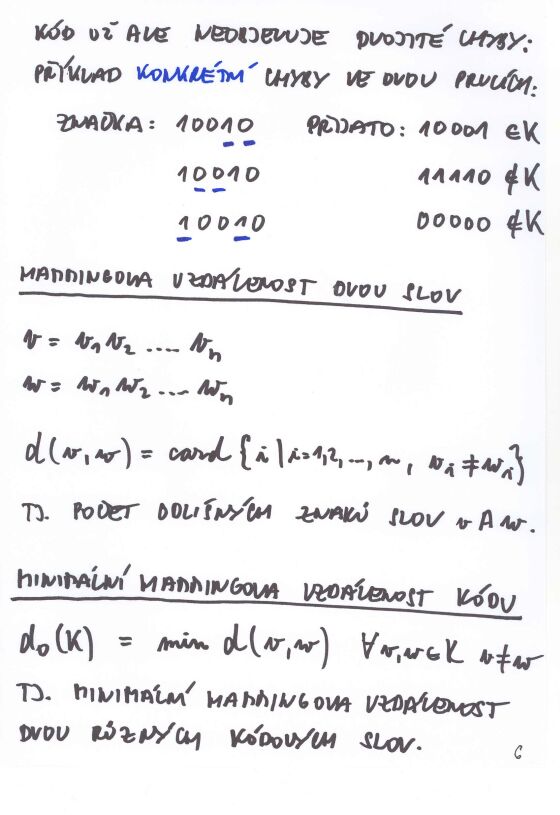 KÓD UŽ ALE NEOBJEVUJE DVOJITÉ CHYBY:
PŘÍKLAD KONKRÉTNÍ CHYBY VE DVOU PRVCÍCH:
ZNAČKA: 10010 PŘIJATO: 10001 ∈K
10010 11110 ∉K
10010 00000 ∉K
HAMMINGOVA VZDÁLENOST DVOU SLOV
v = v₁ v₂ .... vₙ
w = w₁ w₂ .... wₙ
d(v,w) = card {i | i=1,2,...,n, vᵢ ≠ wᵢ}
TJ. POČET ODLIŠNÝCH ZNAKŮ SLOV v A w.
MINIMÁLNÍ HAMMINGOVA VZDÁLENOST KÓDU
d₀(K) = min d(v,w) ∀v,w∈K v≠w
TJ. MINIMÁLNÍ HAMMINGOVA VZDÁLENOST
DVOU RŮZNÝCH KÓDOVÝCH SLOV.
6